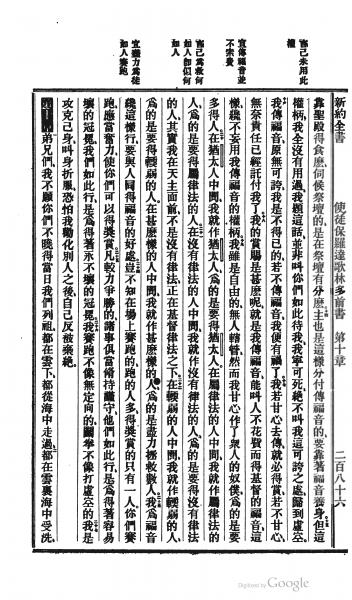 自己未用此
權
宣傳福音並
不索費
自己爲救何
人即似何
如人
宜盡力爲徒
如人賽跑
新約全書 使徒保羅達歌林多前書 第十章 二百八十六
靠聖殿得食麼、伺候祭壇的、是在祭壇有分麼、主也是這樣分付傳福音的、要靠著福音養身、但這
權柄、我全沒有用過、我題這話、並非叫你們如此待我、我寧可死、絕不叫我這可誇之處、歸到虛空、
我傳福音、原無可誇、我是不得已的、若不傳福音、我便有禍了、我若甘心去傳、就必得賞、若不甘心、
無奈責任已經託付我了、我的賞賜是甚麼呢、就是我傳福音、能叫人不花費而得基督的福音、這
樣纔不妄用我傳福音的權柄、我雖是自由的、無人轄管、然而我甘心作了衆人的奴僕、爲的是要
多得人、在猶太人中間、我就作猶太人、爲的是要得猶太人、在屬律法的人中間、我就作屬律法的
人、爲的是要得屬律法的人、在沒有律法的人中間、我就作沒有律法的人、爲的是要得沒有律法
的人、其實我在天主面前、不是沒有律法、正在基督律法之下、在輭弱的人中間、我就作輭弱的人、
爲的是要得輭弱的人、在甚麼樣的人中間、我就作甚麼樣的人、爲的是盡力拯救數人、我爲福音
纔這樣行、要與人同得福音的好處、豈不知在場上賽跑的、跑的人多、得獎賞的只有一人、你們賽
跑、應當奮力、使你們可以得獎賞、凡較力爭勝的、諸事俱當備持謹守、他們如此行、是爲得著容易
壞的冠冕、我們如此行、是爲得著永不壞的冠冕、我賽跑不像無定向的、鬬拳不像打虛空的、我是
攻克己身、叫身折服、恐怕我勸化別人之後、自己反被棄絕、
弟兄們、我不願你們不曉得、當日我們列祖、都在雲下、都從海中走過、都在雲裏海中受洗、
Digitized by Google